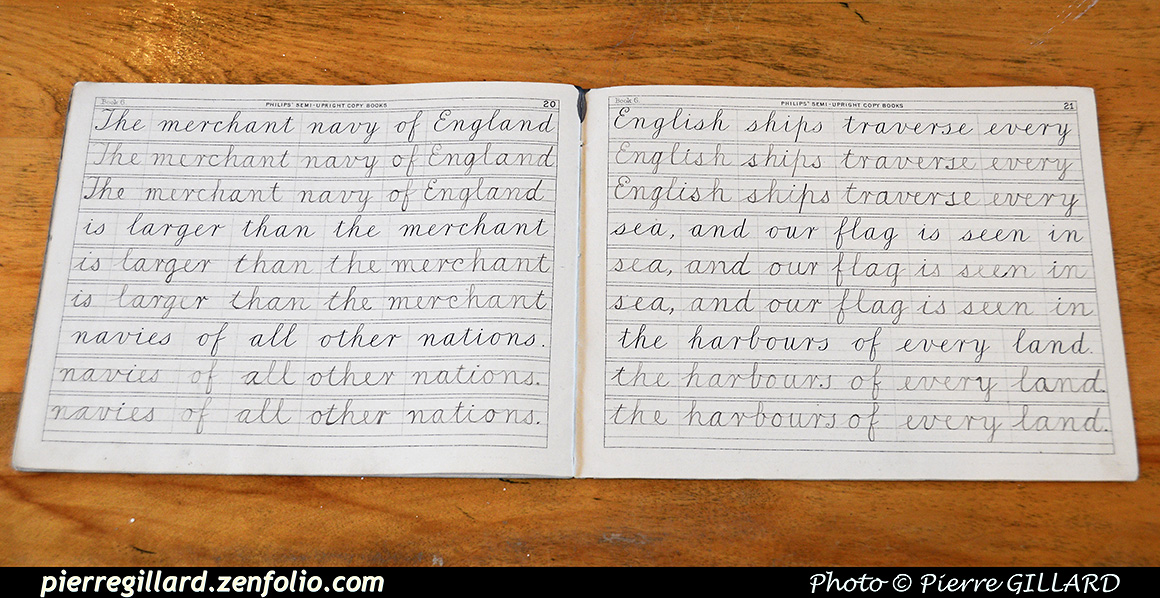 Book 6.
PHILIPS' SEMI-UPRIGHT COPY BOOKS
20
The merchant navy of England
The merchant navy of England
The merchant navy of England
is larger than the merchant
is larger than the merchant
is larger than the merchant
navies of all other nations.
navies of all other nations.
navies of all other nations.
Book 6.
PHILIPS' SEMI-UPRIGHT COPY BOOKS
21
English ships traverse every
English ships traverse every
English ships traverse every
sea, and our flag is seen in
sea, and our flag is seen in
sea, and our flag is seen in
the harbours of every land.
the harbours of every land.
the harbours of every land.
pierregillard.zenfolio.com
Photo © Pierre GILLARD